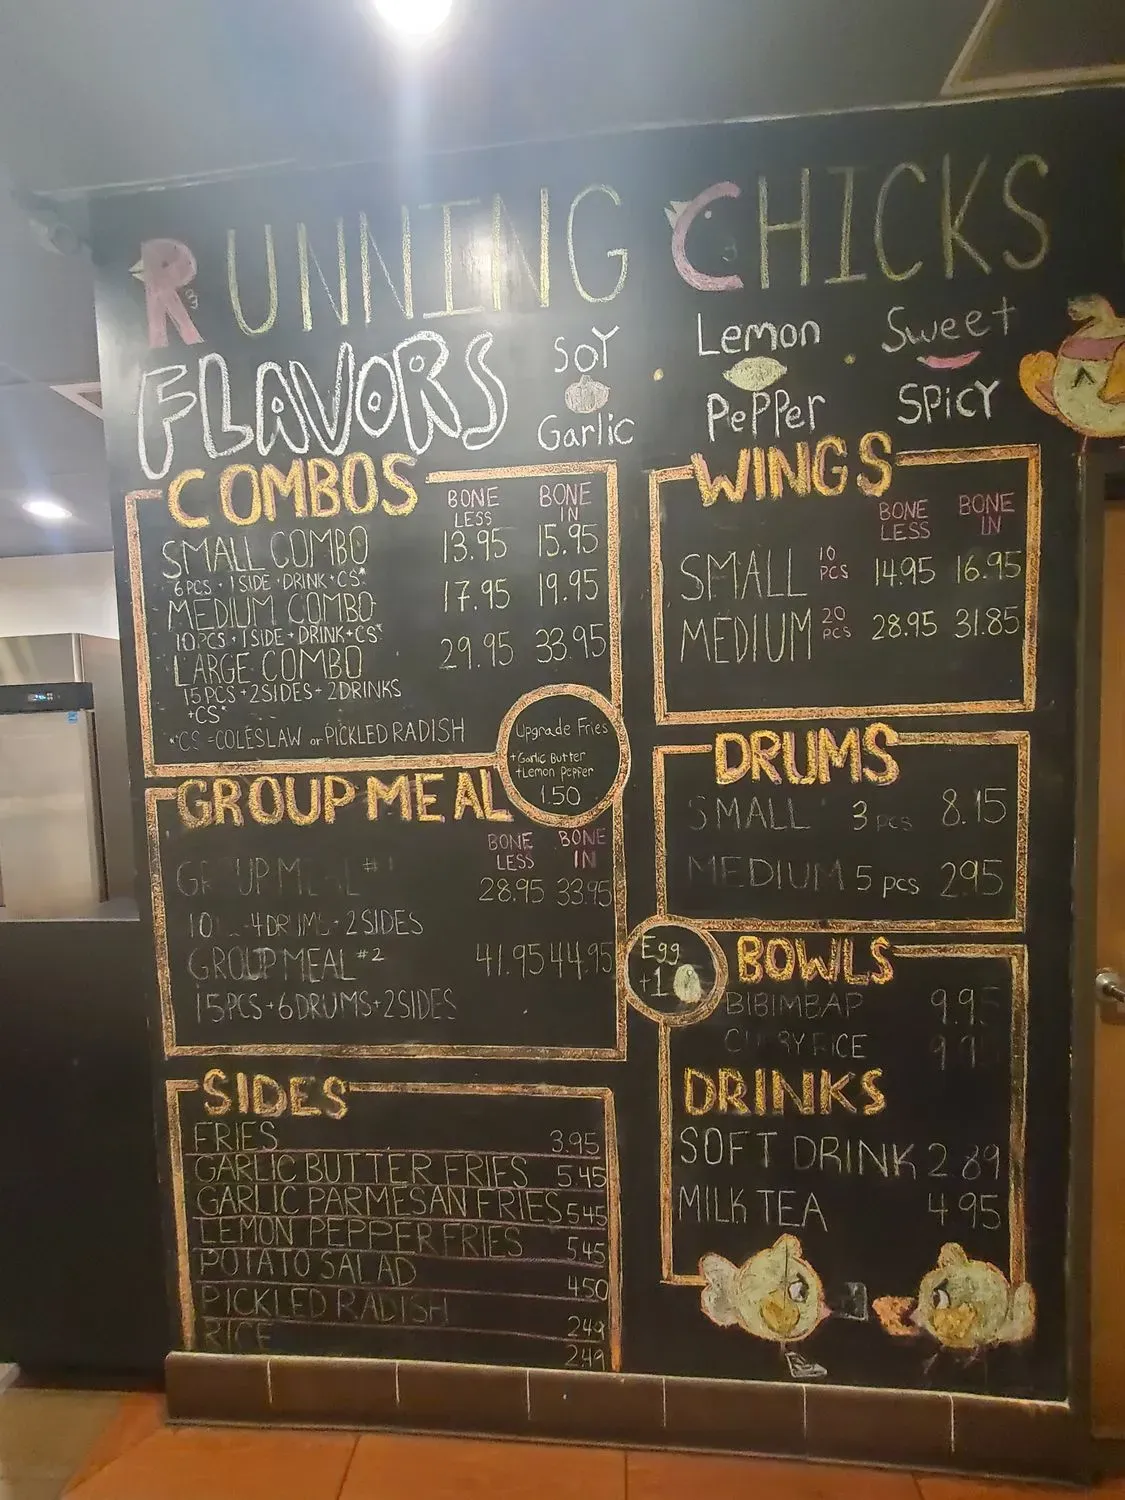 RUNNING CHICKS
FLAVORS
SOY
Garlic
Lemon
PePPer
Sweet
SPicY
COMBOS
BONE LESS
BONE IN
SMALL COMBO 13.95 15.95
6PCS + 1 SIDE + DRINK + CS*
MEDIUM COMBO 17.95 19.95
10PCS + 1SIDE + DRINK + CS*
LARGE COMBO 29.95 33.95
15PCS + 2SIDES + 2DRINKS
+CS*
*CS = COLESLAW or PICKLED RADISH
Upgrade Fries
+Garlic Butter
+Lemon Pepper
1.50
GROUP MEAL
BONE LESS
BONE IN
GROUP MEAL #1 28.95 33.95
10 4DRUMS + 2SIDES
GROUP MEAL #2 41.95 44.95
15PCS + 6DRUMS + 2SIDES
SIDES
FRIES 3.95
GARLIC BUTTER FRIES 5.45
GARLIC PARMESAN FRIES 5.45
LEMON PEPPER FRIES 5.45
POTATO SALAD 4.50
PICKLED RADISH 2.49
RICE 2.49
WINGS
BONE LESS
BONE IN
SMALL 10 PCS 14.95 16.95
MEDIUM 20 PCS 28.95 31.85
DRUMS
SMALL 3 pcs 8.15
MEDIUM 5 pcs 2.95
Egg
+1
BOWLS
BIBIMBAP 9.9
RICE 9.9
DRINKS
SOFT DRINK 2.89
MILK TEA 4.95